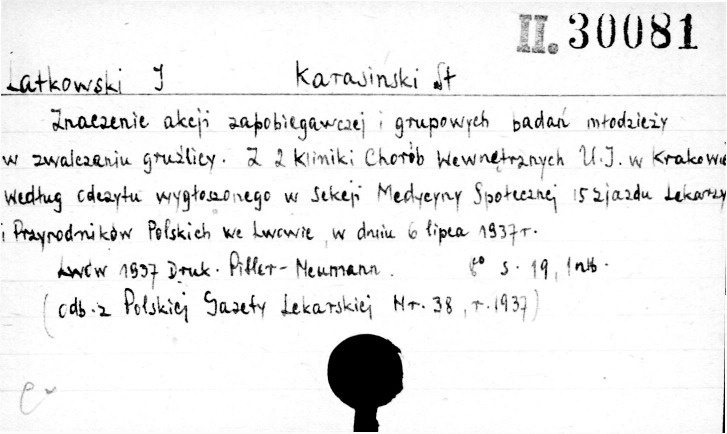 II. 30081
Latkowski J Karasiński St
Znaczenie akcji zapobiegawczej i grupowych badań młodzieży
w zwalczaniu gruźlicy. Z 2 Kliniki Chorób Wewnętrznych U.J. w Krakowie
Według odczytu wygłoszonego w Sekcji Medycyny Społecznej 15 zjazdu Lekarzy
i Przyrodników Polskich we Lwowie, w dniu 6 lipca 1937 r.
Lwów 1937 Druk. Piller-Neumann. 8° s. 19, 1 nlb.
(odb. z Polskiej Gazety Lekarskiej Nr. 38, r. 1937)